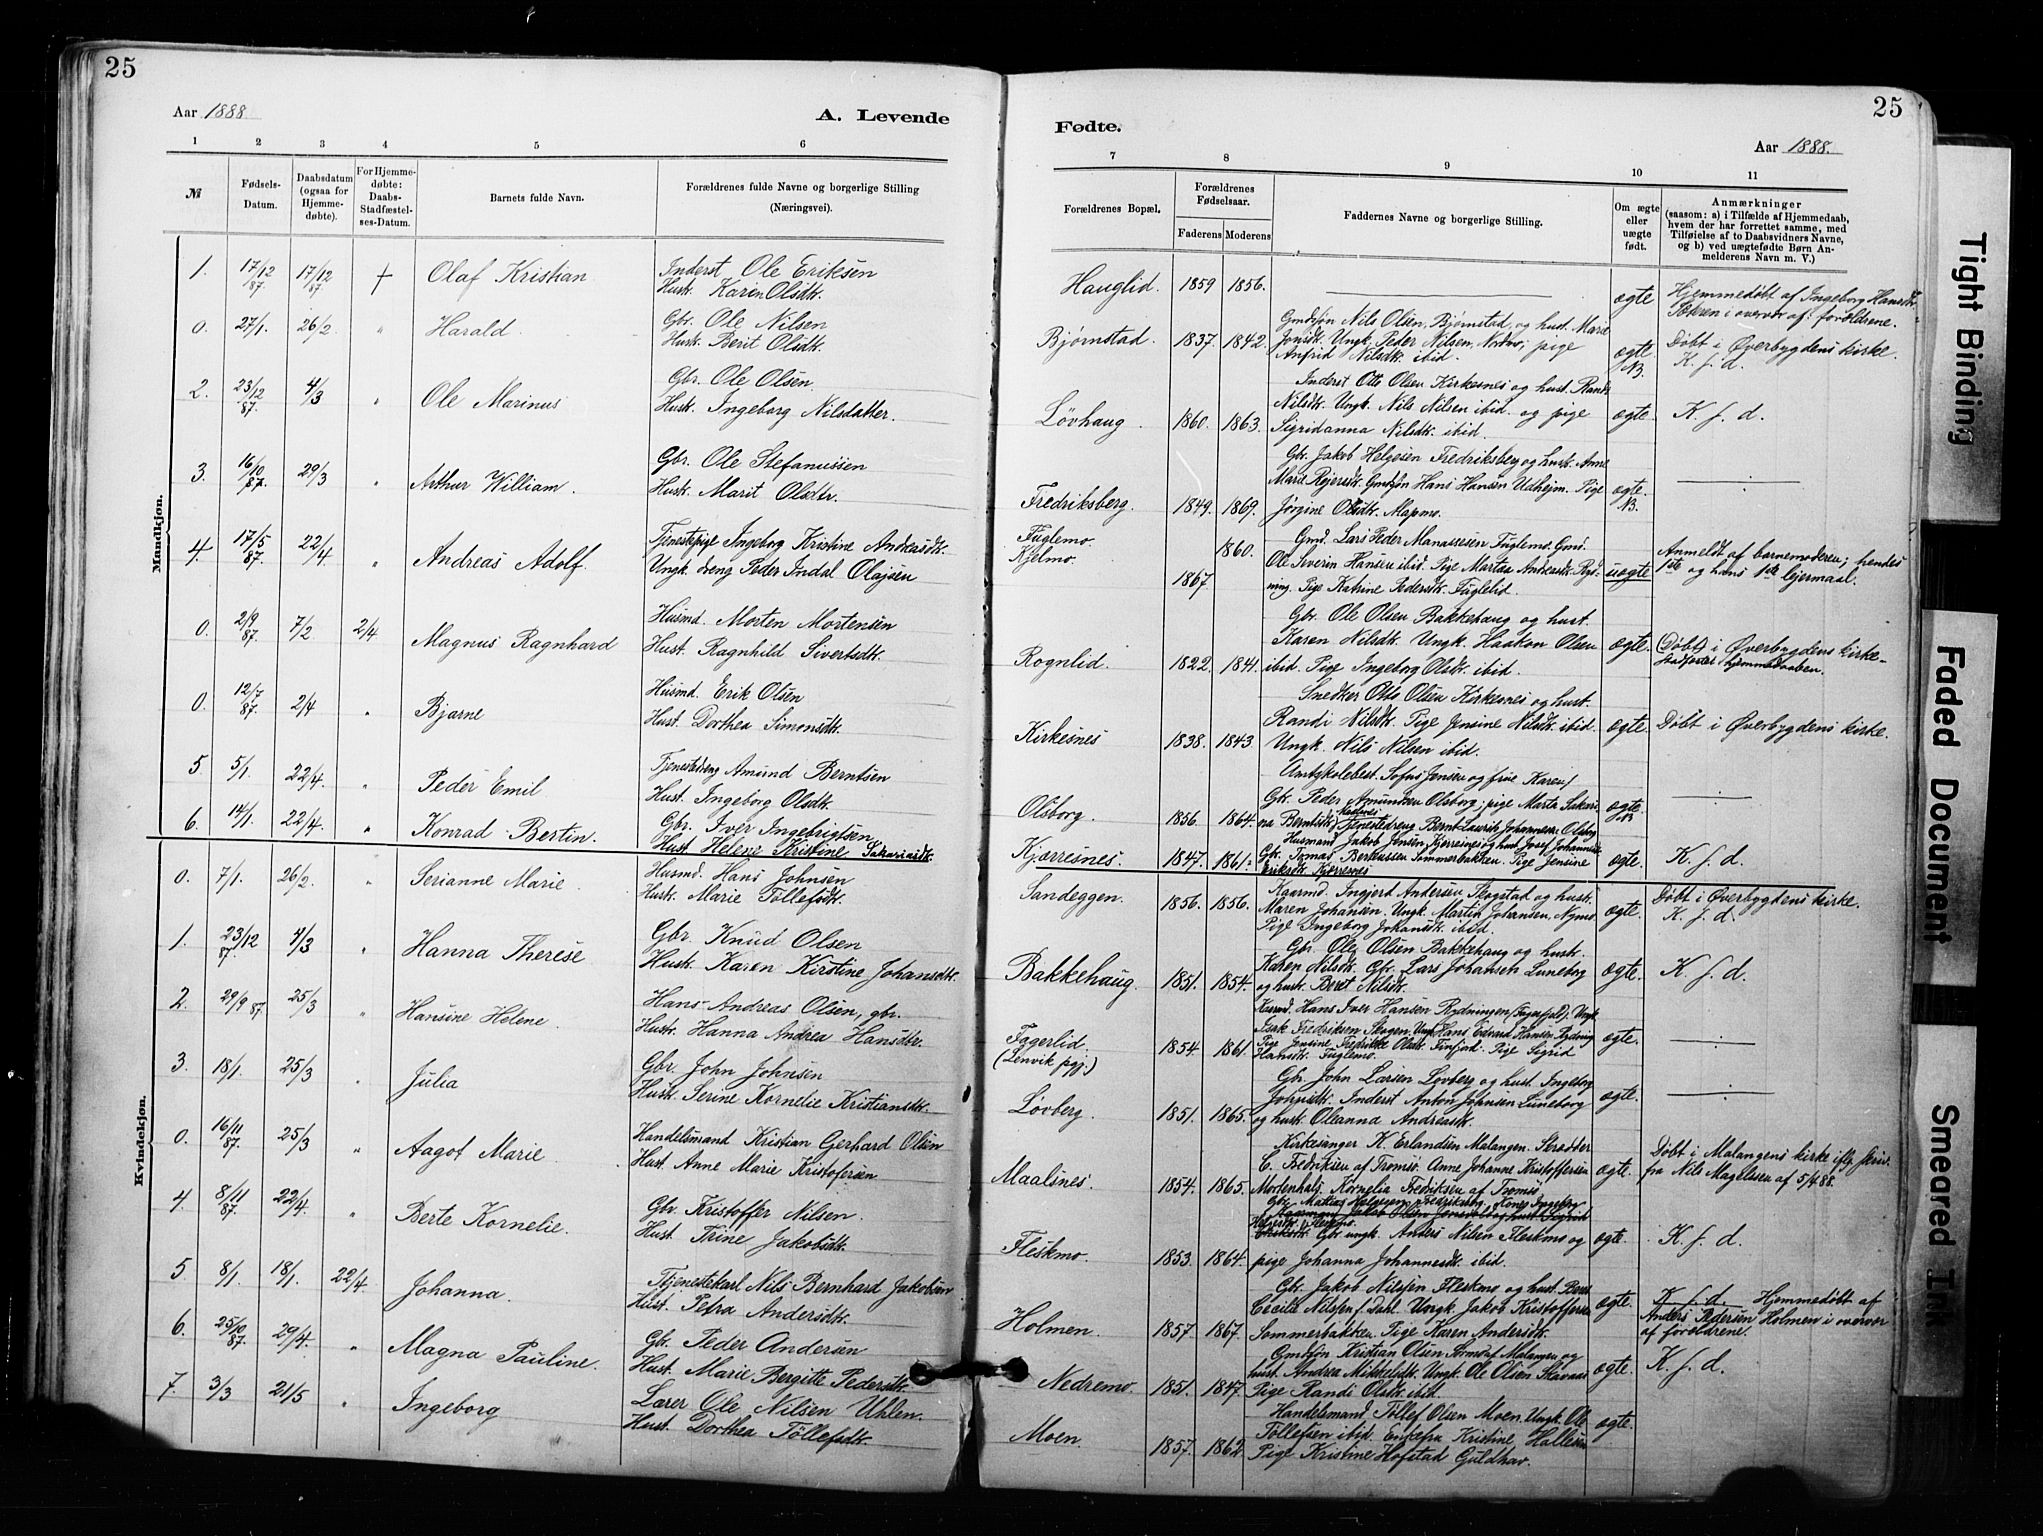 25
25
Aar 1888
A. Levende
Fødte.
Aar 1888.
1 2 3 4 5 6
7 8 9 10 11
№
Fødsels-
Datum.
Daabsdatum
(ogsaa for
Hjemme-
døbte).
For Hjemme-
døbte:
Daabs-
Stadfæstel-
ses-Datum.
Barnets fulde Navn.
Forældrenes fulde Navne og borgerlige Stilling
(Næringsvei).
Forældrenes Bopæl.
Forældrenes
Fødselsaar.
Faderens Moderens
Faddernes Navne og borgerlige Stilling.
Om ægte
eller
uægte
født.
Anmærkninger
(saasom: a) i Tilfælde af Hjemmedaab,
hvem der har forrettet samme, med
Tilføielse af to Daabsvidners Navne,
og b) ved uægtefødte Børn An-
melderens Navn m. V.)
Mandkjøn.
1. 17/12 87. 17/12 87 † Olaf Kristian
Inderst Ole Eriksen
Hust. Karin Olsdtr.
Hauglid. 1859 1856. ægte
Hjemmedøbt af Ingeborg Hansdtr.
i overvær af forældrene.
0. 27/1. 26/2. " Harald.
Gbr. Ole Nilsen
Hust. Berit Olsdtr.
Bjørnstad. 1837. 1842.
Gmdsøn Nils Olsen, Bjørnstad, og hust. Marie
Jonsdtr. Ungk. Peder Nilsen, Nordmo; pige
Anfrid Nilsdtr. ibid.
ægte NB.
Døbt i Øverbygdens kirke.
K. f. d.
2. 23/12 87. 4/3 " Ole Marinus
Gbr. Ole Olsen.
Hust. Ingeborg Nilsdatter.
Løvhaug. 1860. 1863.
Inderst Otto Olsen Kirkesnes og hust. Randi
Nilsdtr. Ungk. Nils Nilsen ibid. og pige
Sigridanna Nilsdtr. ibid.
ægte. K. f. d.
3. 16/10 87. 29/3 " Arthur William.
Gbr. Ole Stefanussen
Hust. Marit Olsdtr.
Fredriksberg. 1849. 1869.
Gbr. Jakob Helgesen Fredriksberg og hust. Anne
Marit Rejersdtr. Gmdsøn Hans Hansen Udhejm. Pige
Jørgine Olsdtr. Mapmo.
ægte. NB.
4. 17/5 87. 22/4. " Andreas Adolf.
Tjenestepige Ingeborg Kristine Andreasdtr.
Ungk. dreng Peder Indal Olajsen
Fuglemo.
Kjelmo. 1867. 1860.
Gmd. Lars Peder Manassesen Fuglemo. Gmd.
Ole Severin Hansen ibid. Pige Martha Andreasdtr. Ryd-
ning. Pige Katrine Pedersdtr. Fuglelid.
uægte
Anmeldt af barnemoderen; hendes
1ste og hans 1ste lejermaal.
0. 2/9 87. 7/2 2/4 Magnus Ragnhard
Husmd. Morten Mortensen
Hust. Ragnhild Sivertsdtr.
Rognlid. 1822. 1841.
Gbr. Ole Olsen Bakkehaug og hust.
Karen Nilsdtr. Ungk. Haakon Olsen
ibid. Pige Ingeborg Olsdtr. ibid.
ægte.
(Døbt) i Øverbygdens kirke-
stadfæstet hjemmedaaben.
0. 12/7 87. 2/4 " Bjarne
Husmd. Erik Olsen
Hust. Dorthea Simonsdtr.
Kirkesnes 1838. 1843
Snedker Otto Olsen Kirkesnes og hust.
Randi Nilsdtr. Pige Jensine Nilsdtr. ibid.
Ungk. Nils Nilsen ibid.
ægte. Døbt i Øverbygdens kirke.
5. 5/1. 22/4. " Peder Emil
Tjenestedreng Amund Berntsen
Hust. Ingeborg Olsdtr.
Olsborg. 1856. 1864.
Amtskolebest. Sofus Jensen og frue Karen,
Gbr. Peder Amundsen Olsborg; pige Marta Sakari-
na Berntsdtr. Tjenestedreng Bernt Laurits Johannesen Olsborg
ægte. NB
6. 14/1. 22/4. " Konrad Bertin.
Gbr. Iver Ingebrigtsen
Hust. Helene Kristine Sakariasdtr.
Kjærresnes. 1847. 1861.
Husmand Jakob Jensen, Kjærresnes og hust. Josef Johannesen
Gbr. Tomas Berteussen Sommerbakken. Pige Jensine
Eriksdtr. Kjærresnes
ægte. K. f. d.
Kvindekjøn.
0. 7/1. 26/2. " Serianne Marie.
Husmd. Hans Johnsen
Hust. Marie Tollefsdtr.
Sandeggen. 1856. 1856.
Kaarmd. Ingjerd Andersen Skogstad og hust.
Maren Johansen. Ungk. Martin Johansen, Nymo.
Pige Ingeborg Johansdtr. ibid.
ægte.
Døbt i Øverbygdens kirke.
K. f. d.
1. 23/12 87. 4/3 " Hanna Therese
Gbr. Knud Olsen
Hust. Karen Kirstine Johansdtr.
Bakkehaug. 1851. 1854.
Gbr. Ole Olsen Bakkehaug og hust.
Karen Nilsdtr. Gbr. Lars Johansen Luneborg
og hust. Beret Nilsdtr.
ægte. K. f. d.
2. 29/9 87. 25/3 " Hansine Helene.
Hans Andreas Olsen, gbr.
Hustr. Hanna Andrea Hansdtr.
Fagerlid
(Lenvik pgj.) 1854. 1861.
Husmd. Hans Iver Hansen Rydningen (Fagerfjeld). Ungk.
Isak Fredriksen Skogen. Ungk. Hans Edvard Hansen Rydning
Pige Jensine Fredrikke Olsdtr. Finfjord. Pige Sigrid
Hansdtr. Fuglemo.
ægte.
3. 18/1. 25/3 " Julia
Gbr. John Johnsen
Hust. Serine Kornelie Kristiansdtr.
Løvberg. 1851. 1865.
Gbr. John Larsen Lovberg og hust. Ingeborg
Johnsdtr. Inderst Anton Johnsen Luneborg
og hust. Oleanna Andreasdtr.
ægte.
0. 16/11 87. 25/3 " Aagot Marie.
Handelsmand Kristian Gerhard Olsen
Hust. Anne Marie Kristofersen
Maalsnes. 1854. 1865.
Kirkesanger K. Erlandsen Malangen. Skrædder
C. Fredriksen af Tromsø. Anne Johanne Kristoffersen
Mortenhals. Kornelia Fredriksen af Tromsø
ægte.
Døbt i Malangens kirke iflg. skriv.
fra Nils Magelssen af 5/4 88.
4. 8/11 87. 22/4. " Berte Kornelie.
Gbr. Kristoffer Nilsen.
Hust. Trine Jakobsdtr.
Fleskmo. 1853. 1864.
Gbr. Mattias Helgesen Fredriksberg. Kone Ingeborg
Gbr ungk. Anders Nilsen Fleskmo og
pige Johanna Johannesdtr. ibid.
ægte. K. f. d.
5. 8/1. 18/1. 22/4. Johanna.
Tjenestekarl Nils Bernhard Jakobsen
Hust. Petra Andersdtr.
Holmen. 1857. 1867.
Gbr. Jakob Nilssen Fleskmo og hust. Berit
Cecilie Nilssen f. Dahl. Ungk. Jakob Kristoffersen
Sommerbakken. Pige Karen Andersdtr.
ægte.
K. f. d. Hjemmedøbt af
Anders Pedersen Holmen i overvær
af forældrene.
6. 25/10 87. 29/4. " Magna Pauline.
Gbr. Peder Andersen
Hust. Marie Bergitte Pedersdtr.
Nedremo. 1851. 1847.
Gmdsøn Kristian Olsen Malangen og
hust. Andrea Mikkelsdtr. Ungk. Ole Olsen Slavnas
Pige Randi Olsdtr. ibid.
ægte. K. f. d.
7. 3/3 21/5 " Ingeborg
Lærer Ole Nilsen Uhlen.
Hust. Dorthea Tollefsdtr.
Moen. 1857. 1862.
Handelsmand Tollef Olsen Moen. Ungk. Ole
Tollefsen ibid. Enkefru Kristine Hallesen
Pige Kristine Hofstad Guldhav.
ægte.
Tight Binding
Faded Document
Smeared Ink